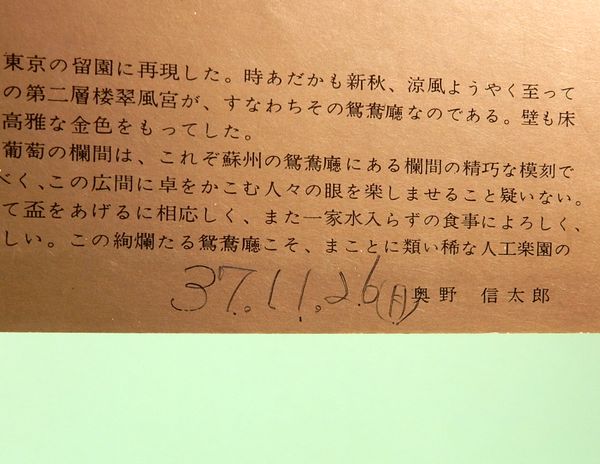 東京の留園に再現した。時あだかも新秋、涼風ようやく至って
の第二層楼翠風宮が、すなわちその鴛鴦廳なのである。壁も床
高雅な金色をもってした。
葡萄の欄間は、これぞ蘇州の鴛鴦廳にある欄間の精巧な模刻で
べく、この広間に卓をかこむ人々の眼を楽しませること疑いない。
て盃をあげるに相応しく、また一家水入らずの食事によろしく、
しい。この絢爛たる鴛鴦廳こそ、まことに類い稀な人工楽園の
37.11.26(月)
奥野 信太郎